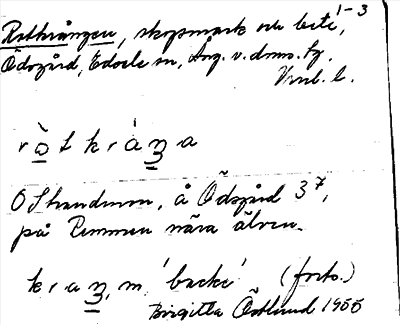 1-3
Rotkrången, skogsmark och bete,
Ödsgård, Edsele sn, Ång. v. dmns. fg.
Vnl. l.
r ò t k r å ŋ a
O Strandmon, å Ödsgård 3⁷,
på Remmen nära älven.
k r a ŋ, m. 'backe' (forts.)
Birgitta Östlund 1955